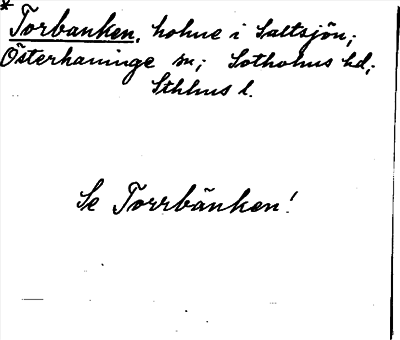 * Torbanken, holme i Saltsjön;
Österhaninge sn; Sotholms hd;
Sthlms l.
Se Torrbänken!